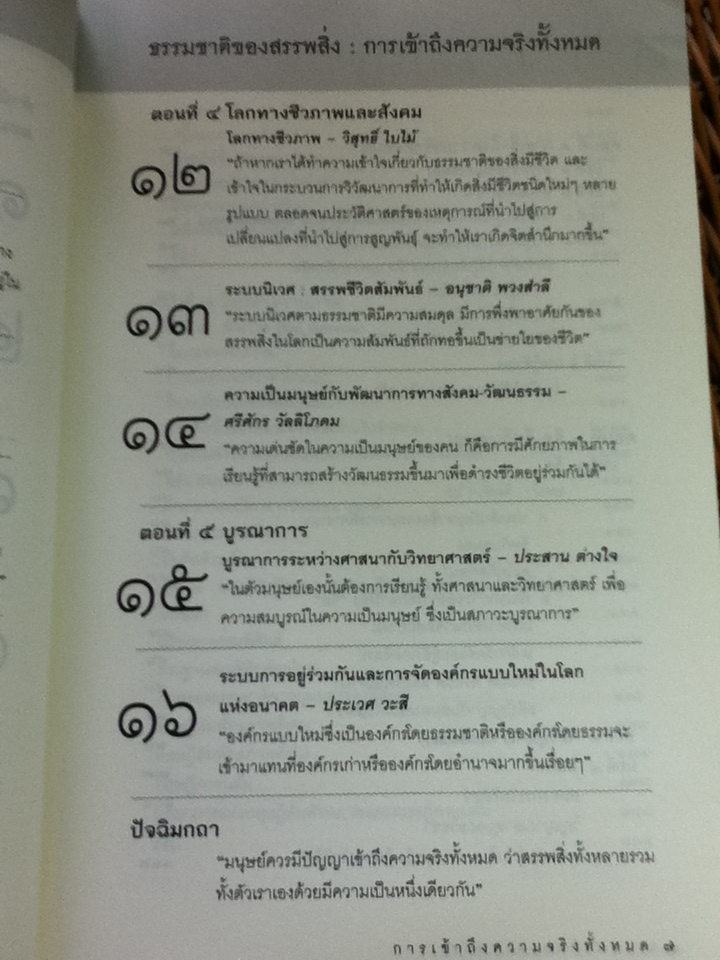 ธรรมชาติของสรรพสิ่ง : การเข้าถึงความจริงทั้งหมด
ตอนที่ ๔ โลกทางชีวภาพและสังคม
โลกทางชีวภาพ – วิสุทธิ์ ใบไม้
๑๒
“ถ้าหากเราได้ทำความเข้าใจเกี่ยวกับธรรมชาติของสิ่งมีชีวิต และ
เข้าใจในกระบวนการวิวัฒนาการที่ทำให้เกิดสิ่งมีชีวิตชนิดใหม่ๆ หลาย
รูปแบบ ตลอดจนประวัติศาสตร์ของเหตุการณ์ที่นำไปสู่การ
เปลี่ยนแปลงที่นำไปสู่การสูญพันธุ์ จะทำให้เราเกิดจิตสำนึกมากขึ้น”
ระบบนิเวศ : สรรพชีวิตสัมพันธ์ – อนุชาติ พวงสำลี
๑๓
“ระบบนิเวศตามธรรมชาติมีความสมดุล มีการพึ่งพาอาศัยกันของ
สรรพสิ่งในโลกเป็นความสัมพันธ์ที่ถักทอขึ้นเป็นข่ายใยของชีวิต”
ความเป็นมนุษย์กับพัฒนาการทางสังคม-วัฒนธรรม –
๑๔
ศรีศักร วัลลิโภดม
“ความเด่นชัดในความเป็นมนุษย์ของคน ก็คือการมีศักยภาพในการ
เรียนรู้ที่สามารถสร้างวัฒนธรรมขึ้นมาเพื่อดำรงชีวิตอยู่ร่วมกันได้”
ตอนที่ ๕ บูรณาการ
บูรณาการระหว่างศาสนากับวิทยาศาสตร์ – ประสาน ต่างใจ
๑๕
“ในตัวมนุษย์เองนั้นต้องการเรียนรู้ ทั้งศาสนาและวิทยาศาสตร์ เพื่อ
ความสมบูรณ์ในความเป็นมนุษย์ ซึ่งเป็นสภาวะบูรณาการ”
ระบบการอยู่ร่วมกันและการจัดองค์กรแบบใหม่ในโลก
๑๖
แห่งอนาคต – ประเวศ วะสี
“องค์กรแบบใหม่ซึ่งเป็นองค์กรโดยธรรมชาติหรือองค์กรโดยธรรมจะ
เข้ามาแทนที่องค์กรเก่าหรือองค์กรโดยอำนาจมากขึ้นเรื่อยๆ”
ปัจฉิมกถา
“มนุษย์ควรมีปัญญาเข้าถึงความจริงทั้งหมด ว่าสรรพสิ่งทั้งหลายรวม
ทั้งตัวเราเองด้วยมีความเป็นหนึ่งเดียวกัน”
การเข้าถึงความจริงทั้งหมด ๗